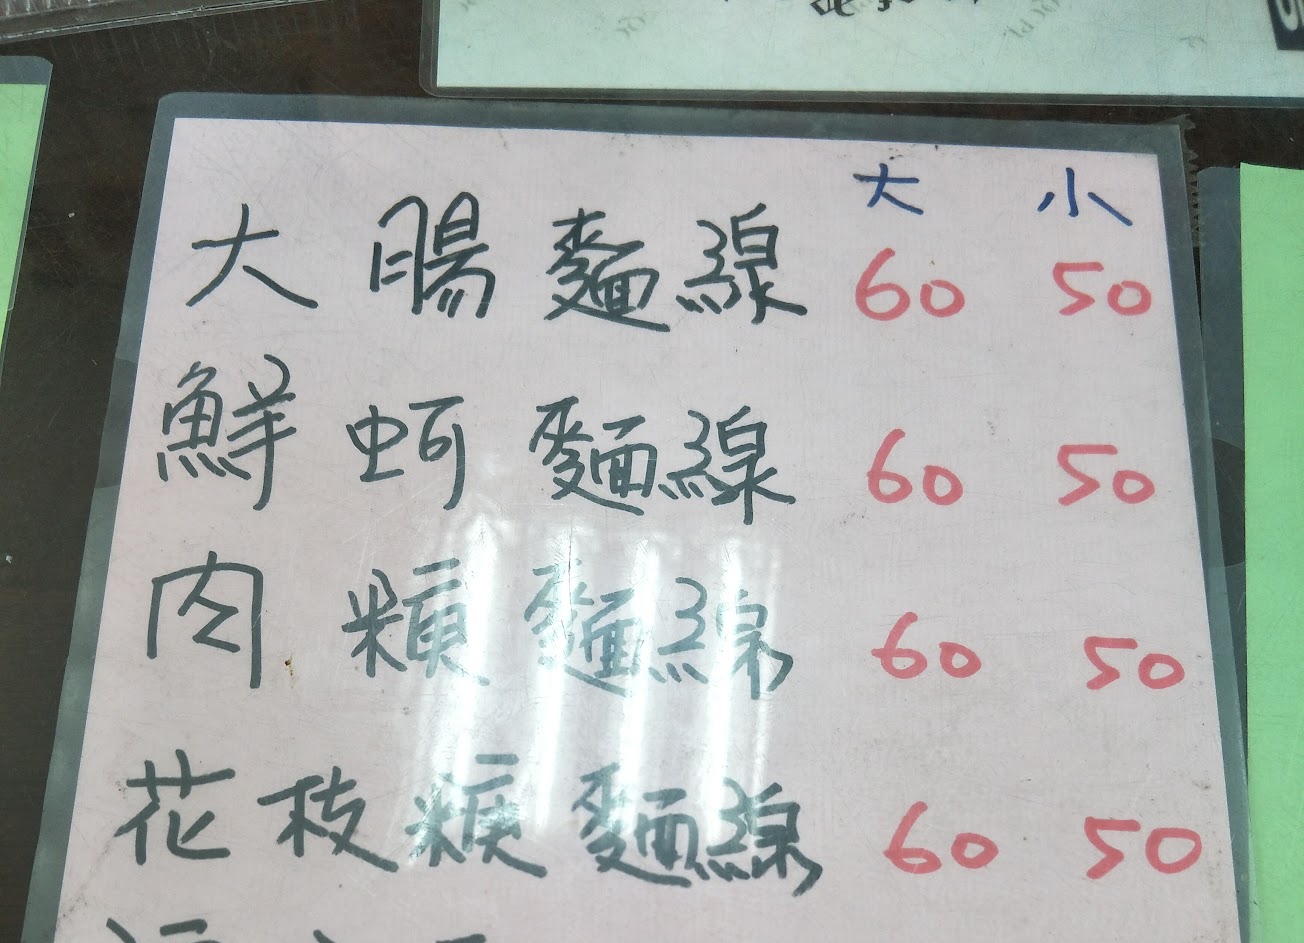 大 小
大腸麵線 60 50
鮮蚵麵線 60 50
肉粳麵線 60 50
花枝粳麵線 60 50